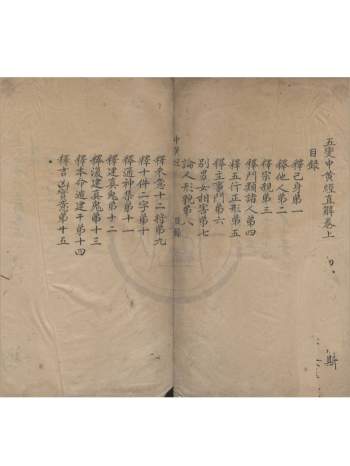 五變中黃經直解卷上
目錄
釋己身第一
釋他人第二
釋宗親第三
釋門類諸人第四
釋五行正形第五
釋主事門第六
別男女相害第七
論人形貌第八
中黃經 目錄
釋來意十二將第九
釋十件二字第十
釋遁神集第十一
釋建真鬼第十二
釋復建真鬼第十三
釋本命遁建干第十四
釋吉凶第十五